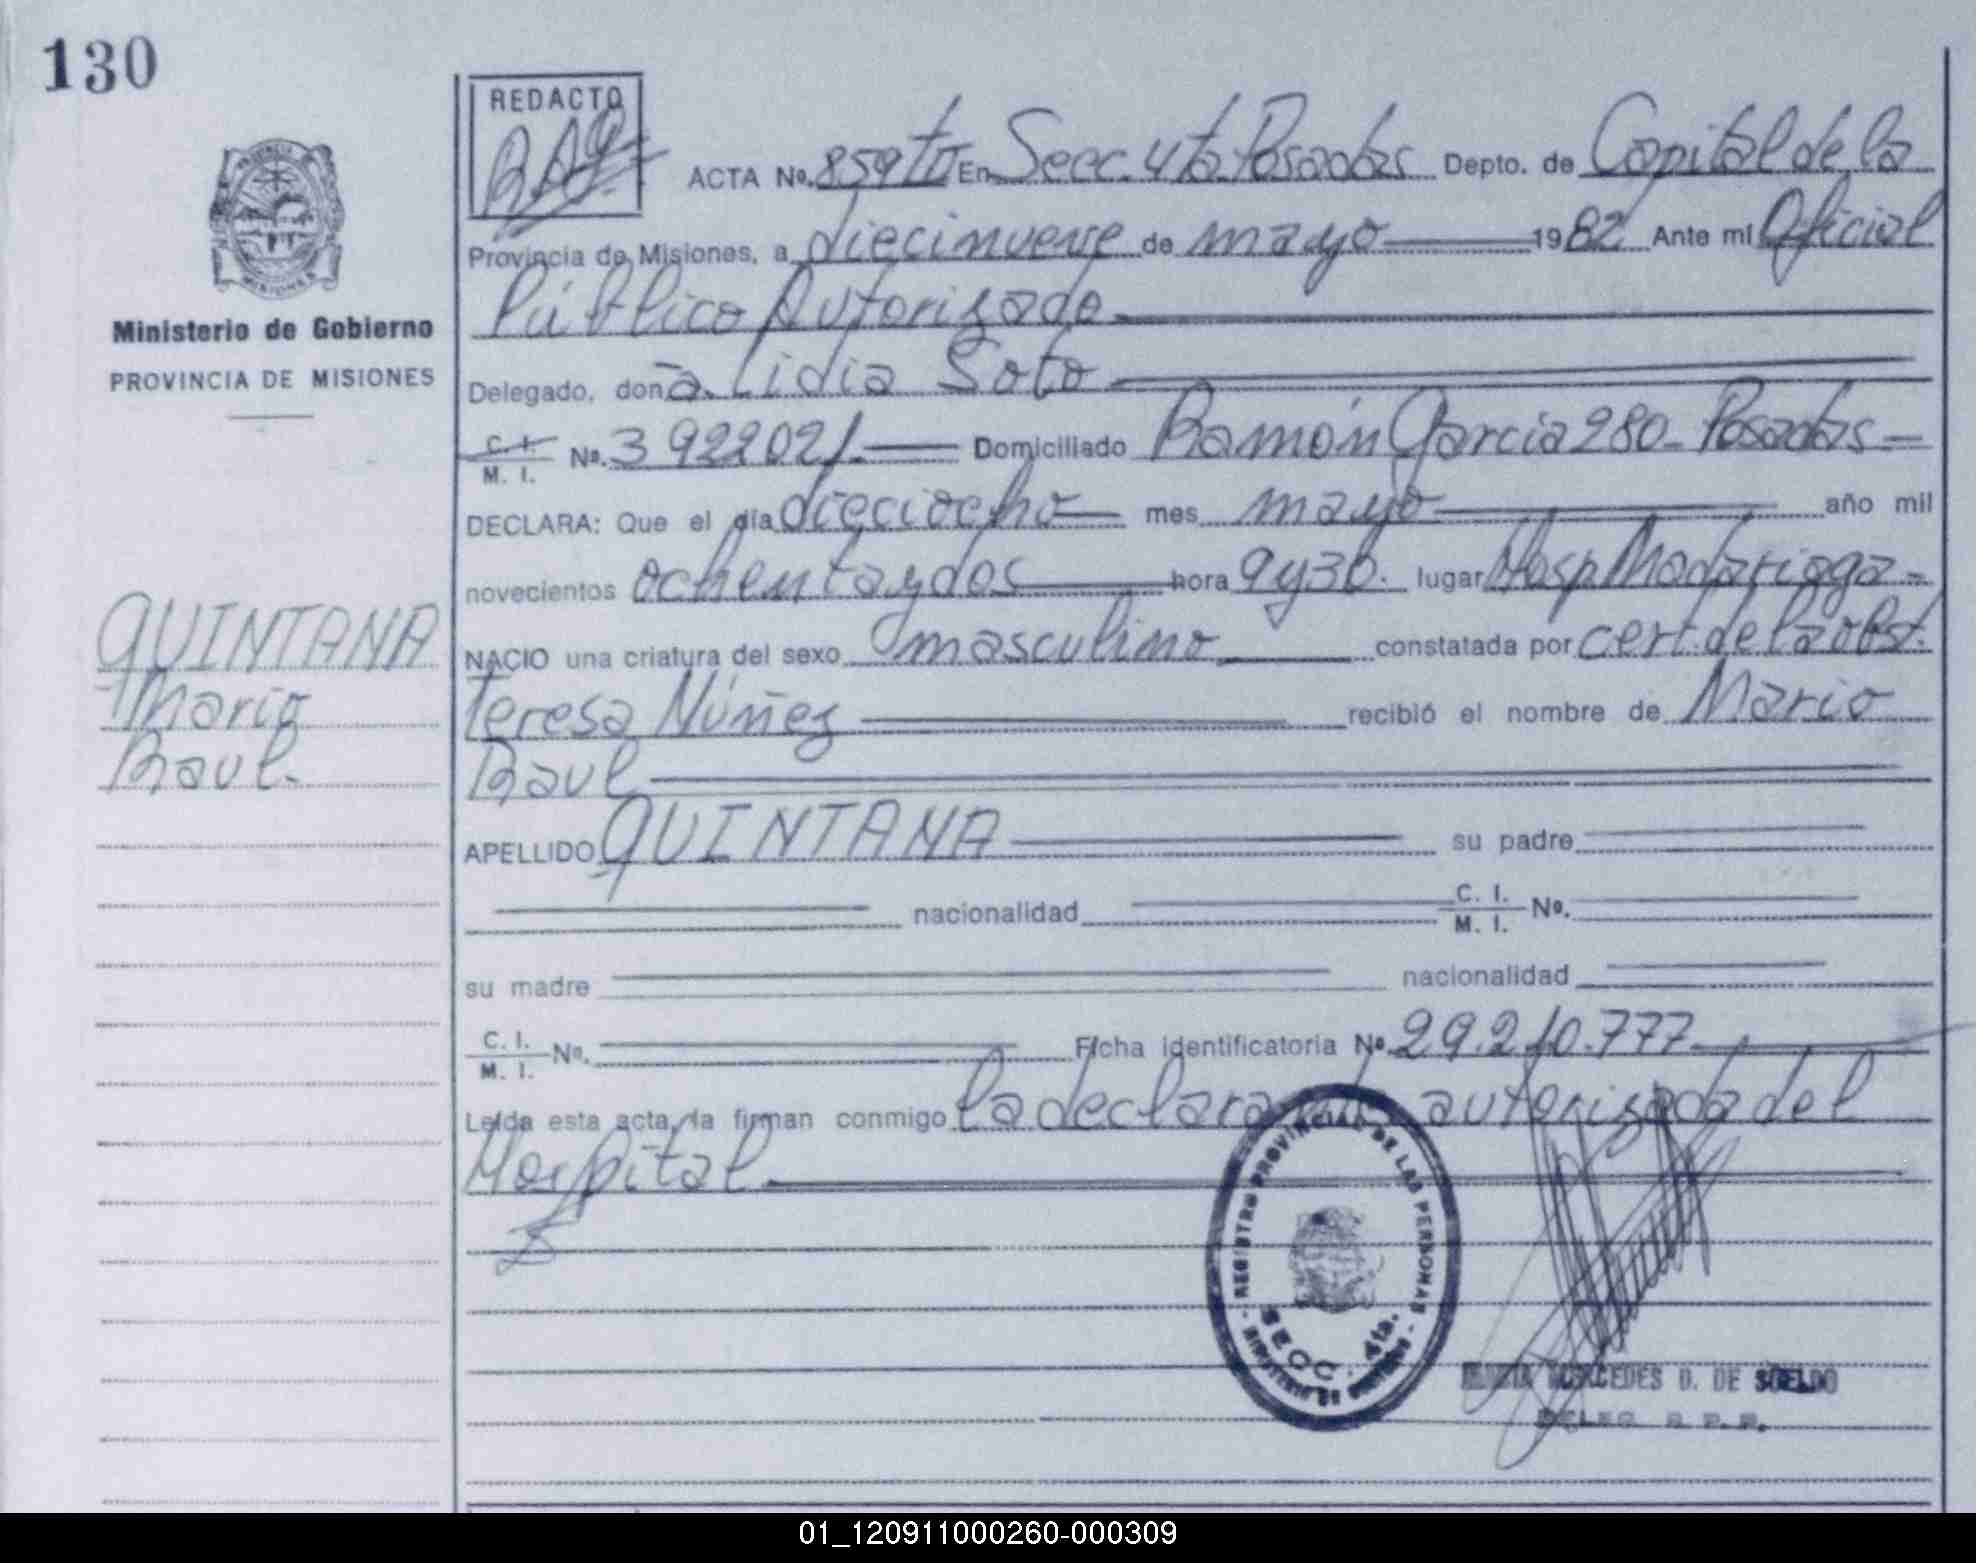 130
REDACTO
ACTA Nº. 859 tº II En Secc. 4ta. Posadas Depto. de Capital de la
Provincia de Misiones, a diecinueve de mayo 1982 Ante mí Oficial
Público Autorizado
Delegado, doña. Lidia Soto
C. I. M. I. Nº. 3922021 Domiciliado Ramón Garcia 280 - Posadas -
DECLARA: Que el día dieciocho mes mayo año mil
novecientos ochenta y dos hora 9 y 30. lugar Hosp. Madariaga -
NACIO una criatura del sexo masculino constatada por cert. de la obst.
Teresa Núñez recibió el nombre de Mario
Raul
APELLIDO QUINTANA su padre
nacionalidad C. I. M. I. Nº.
su madre nacionalidad
C. I. M. I. Nº. Ficha identificatoria Nº. 29.210.777
Leída esta acta, la firman conmigo la declarante autorizada del
Hospital
PROVINCIA DE MISIONES
Ministerio de Gobierno
PROVINCIA DE MISIONES
QUINTANA
Mario
Raul.
REGISTRO PROVINCIAL DE LAS PERSONAS
SECC. 4ta.
MERCEDES D. DE SUELDO
01_120911000260-000309